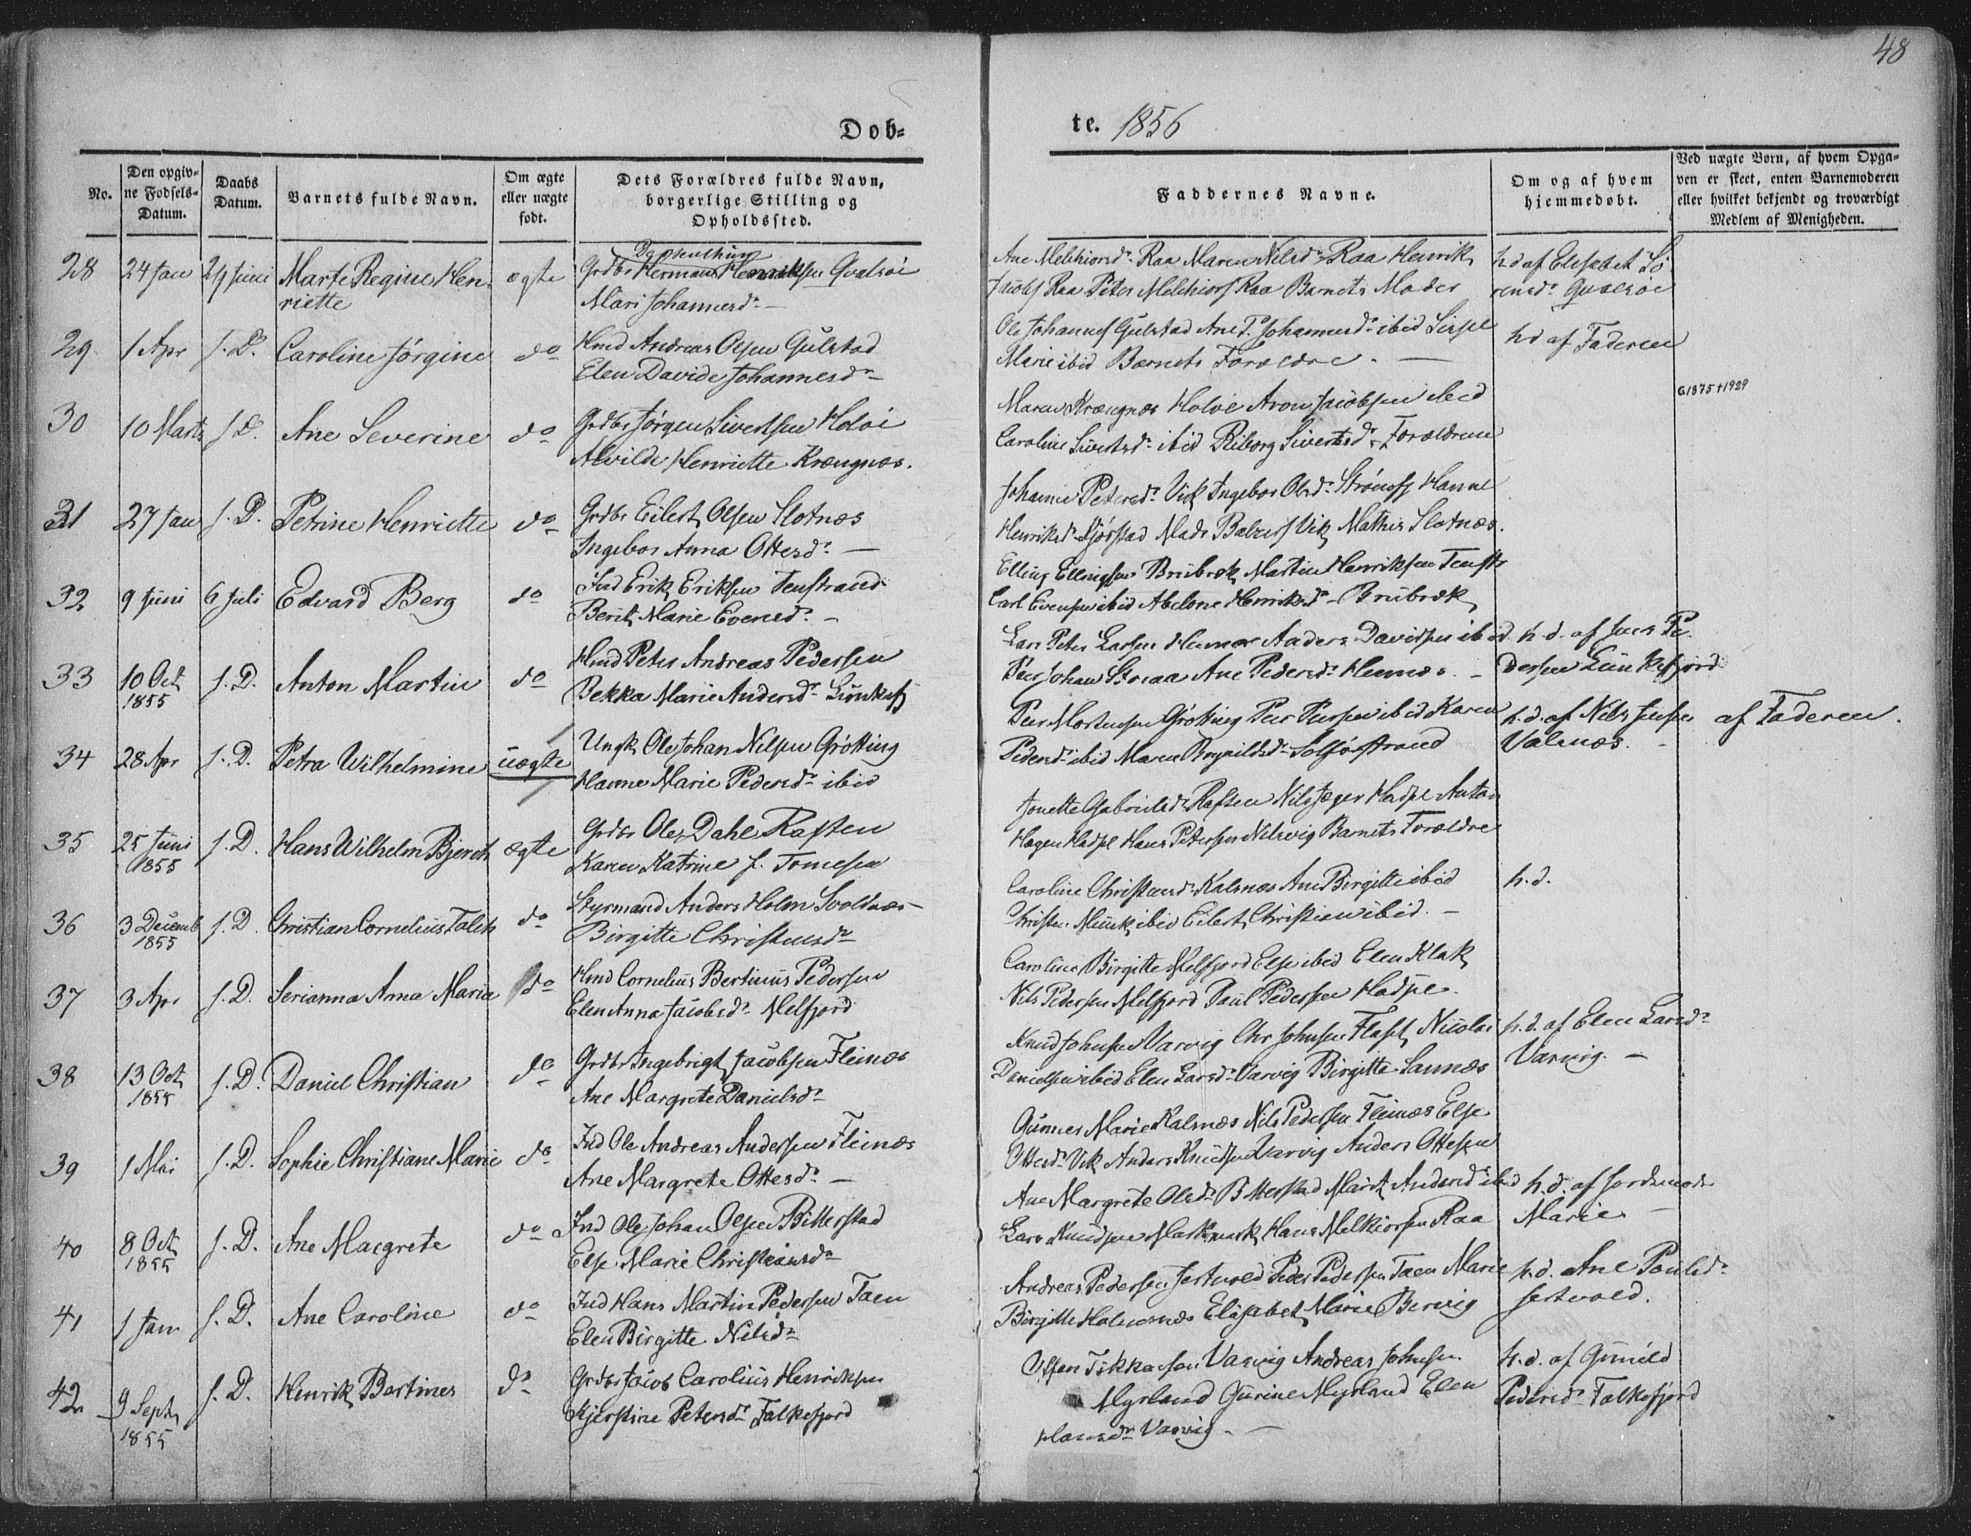 48
Døb-
te. 1856
No.
Den opgiv-
ne Fødsels-
Datum.
Daabs
Datum.
Barnets fulde Navn.
Om ægte
eller uægte
født.
Dets Forældres fulde Navn,
borgerlige Stilling og
Opholdssted.
Faddernes Navne.
Om og af hvem
hjemmedøbt.
Ved uægte Børn, af hvem Opga-
ven er skeet, enten Barnemoderen
eller hvilket bekjendt og troværdigt
Medlem af Menigheden.
28 24 Jan 29 Juni Marte Regine Hen-
riette
ægte
Grdbr Herman Henriksen
Mari Johannesdr
Ane Melchiorsdr Raa Maren Nilsdr Raa Henrik
Jacobs Raa Peter Melchiors Raa Barnets Moder
hd af Elisabet Sö
rensdr
29 1 Apr s. D. Caroline Jørgine do
Hmd Andreas Olsen Gulstad
Elen Davide Johannesdr
Ole Johannes Gulstad Ane P. Johannesdr ibid
Marie ibid Barnets Forældre.
hd af Faderen
30 10 Marts s. D. Ane Severine do
Grdbr Jørgen Sivertsen Holöi
Alvilde Henriette Krængnæs.
Maren Krængnæs Aron Jacobsen ibid
Caroline Sivertsdr ibid Sivertsdr Forældrene
G 1875 † 1929
31 27 Jan s. D. Petrine Henriette do
Grdbr Eilert Olsen Slotnæs
Ingebor Anna Ottesdr
Johanna Petersdr Vik Ingebor Olsdr Hanne
Henriksdr Mads Vik Mathis Slotnæs.
32 9 Juni 6 Juli Edvard Berg do
Ind Erik Eriksen Tenstrand
Berit Marie Evensdr
Elling Ellingsen Martin Henriksen
Carl Evensen ibid Abelone Henriksdr
33 10 Oct
1855
s. D. Anton Martin do
Hmd Peter Andreas Pedersen
Bekka Marie Andersdr
Lars Peter Larsen Anders Davidsen ibid
Peer Johan Ane Pedersdr
h. d. af Jens Pe-
dersen Lunkefjord
34 28 Apr s. D. Petra Wilhelmine uægte
Ungk Ole Johan Nilsen Grötting
Hanne Marie Pedersdr ibid
Peer Mortensen Grötting Peer ibid Karen
Pedersdr ibid Maren
h. d. af Nils Jensen
Valnæs.
af Faderen.
35 25 Juni
1855
s. D. Hans Wilhelm ægte
Grdbr Ole Dahl Raften
Karen Katrine f. Tomesen
Jonette Gabrielsdr Raften Nils Jæger Hadsel Anton
Hagen Hadsel Hans Petersen Barnets Forældre
36 3 Decemb
1855
s. D. Christian Cornelius Falch do
Styrmand Anders Holm
Birgitte Christensdr
Caroline Christensdr Kalsnæs Ane Birgitte ibid
Christen Munk ibid Eilert Christian ibid.
h. d.
37 3 Apr s. D. Serianna Anna Maria do
Hmd Cornelius Bertinus Pedersen
Elen Anna Jacobsdr Melfjord
Caroline Birgitte Melfjord Else ibid Elen Klak
Nils Pedersen Melfjord Paul Pedersen Hadsel.
38 13 Oct
1855
s. D. Daniel Christian do
Grdbr Ingebrigt Jacobsen Fleinæs
Ane Margrete Danielsdr
Knud Johnsen Varvig Chr Johnsen Nicolai
Danielsen ibid Elen Larsdr Varvig Birgitte Sannæs
h. d. af Elen Larsdr
Varvig.
39 1 Mai s. D. Sophie Christiane Marie do
Ind Ole Andreas Andersen Fleinæs
Ane Margrete Ottesdr
Marie Kalsnæs Nils Pedersen Fleinæs Else
Ottesdr Vik Anders Knudsen Varvig Anders Ottesen
40 8 Oct
1855
s. D. Ane Margrete do
Ind Ole Johan Olsen Bitterstad
Else Marie Christiansdr
Ane Margrete Olsdr Bitterstad Marit Andersdr ibid
Lars Knudsen Hans Melkiorsen Raa
h. d. af Jordemoder
Marie
41 1 Jan s. D. Ane Caroline do
Ind Hans Martin Pedersen Taen
Elen Birgitte Nilsdr
Andreas Pedersen Peder Pedersen Taen Marie
Birgitte Elisabet Marie
h. d. Ane Paulsdr
42 9 Sept
1855
s. D. Henrik Bertines do
Grdbr Jacob Carolius Henriksen
Kjerstine Petersdr Falkefjord
Varvig Andreas Johnsen
Myrland Gurine Myrland Elen
Hansdr Varvig.
h. d. af Gunild
Pedersdr Falkefjord